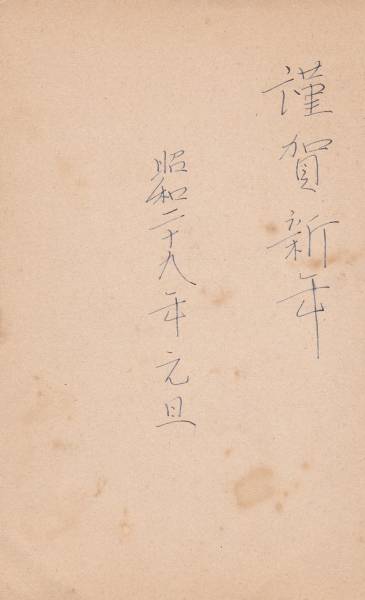 謹賀新年
昭和二十九年元旦